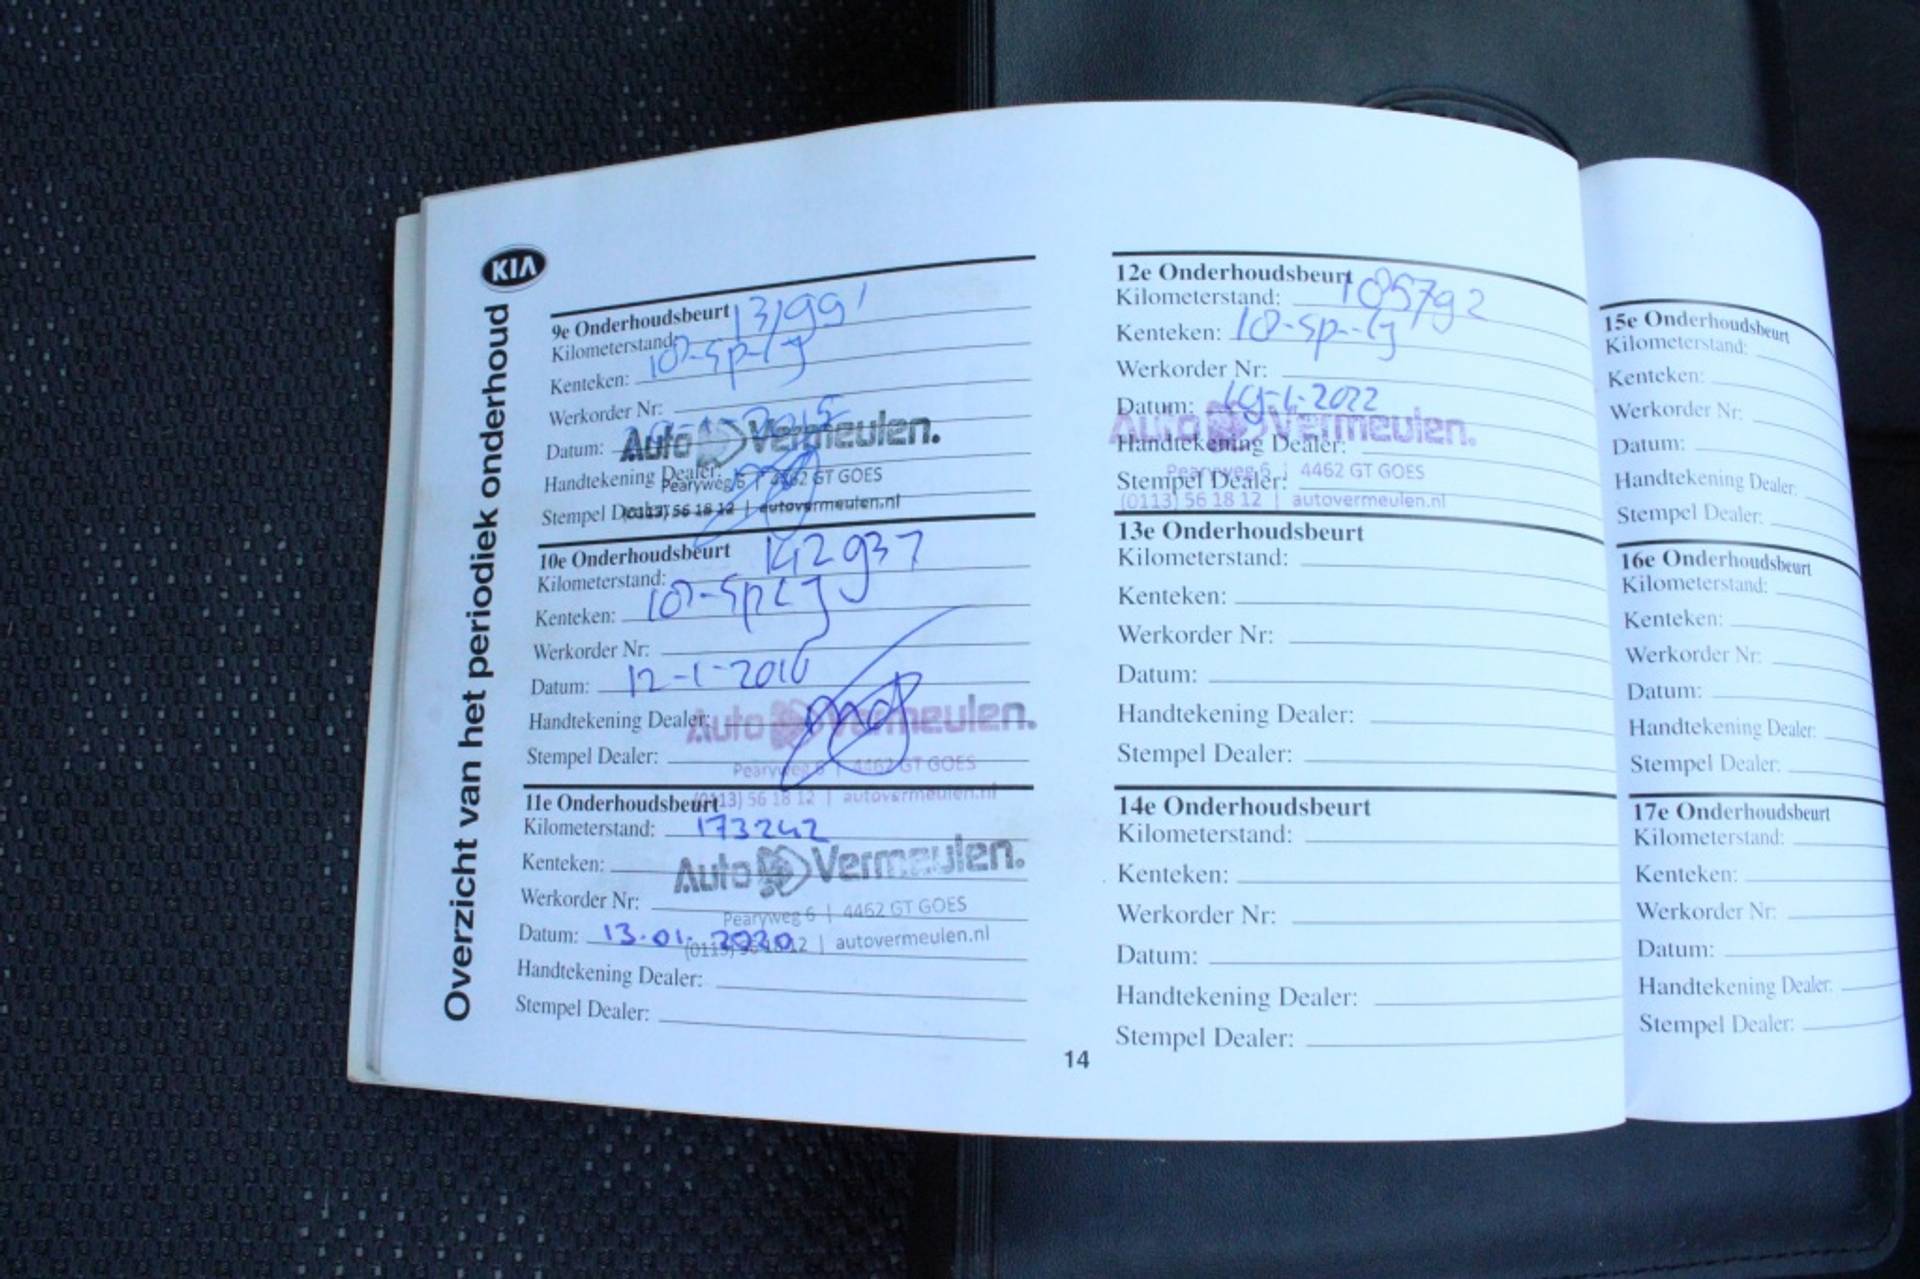 KIA
Overzicht van het periodiek onderhoud
9e Onderhoudsbeurt
Kilometerstand: 131991
Kenteken: 10-SP-LJ
Werkorder Nr:
Datum: 2015
Auto Vermeulen.
Handtekening Dealer:
Pearyweg 6 | 4462 GT GOES
Stempel Dealer:
(0113) 56 18 12 | autovermeulen.nl
10e Onderhoudsbeurt
Kilometerstand: 142937
Kenteken: 10-SP-LJ
Werkorder Nr:
Datum: 12-1-2016
Handtekening Dealer:
Auto Vermeulen.
Stempel Dealer:
Pearyweg 6 | 4462 GT GOES
(0113) 56 18 12 | autovermeulen.nl
11e Onderhoudsbeurt
Kilometerstand: 173242
Kenteken:
Auto Vermeulen.
Werkorder Nr:
Pearyweg 6 | 4462 GT GOES
Datum: 13-01-2020
(0113) 56 18 12 | autovermeulen.nl
Handtekening Dealer:
Stempel Dealer:
12e Onderhoudsbeurt
Kilometerstand: 185792
Kenteken: 10-SP-LJ
Werkorder Nr:
Datum: 2022
Auto Vermeulen.
Handtekening Dealer:
Pearyweg 6 | 4462 GT GOES
Stempel Dealer:
(0113) 56 18 12 | autovermeulen.nl
13e Onderhoudsbeurt
Kilometerstand:
Kenteken:
Werkorder Nr:
Datum:
Handtekening Dealer:
Stempel Dealer:
14e Onderhoudsbeurt
Kilometerstand:
Kenteken:
Werkorder Nr:
Datum:
Handtekening Dealer:
Stempel Dealer:
14
15e Onderhoudsbeurt
Kilometerstand:
Kenteken:
Werkorder Nr:
Datum:
Handtekening Dealer:
Stempel Dealer:
16e Onderhoudsbeurt
Kilometerstand:
Kenteken:
Werkorder Nr:
Datum:
Handtekening Dealer:
Stempel Dealer:
17e Onderhoudsbeurt
Kilometerstand:
Kenteken:
Werkorder Nr:
Datum:
Handtekening Dealer:
Stempel Dealer: